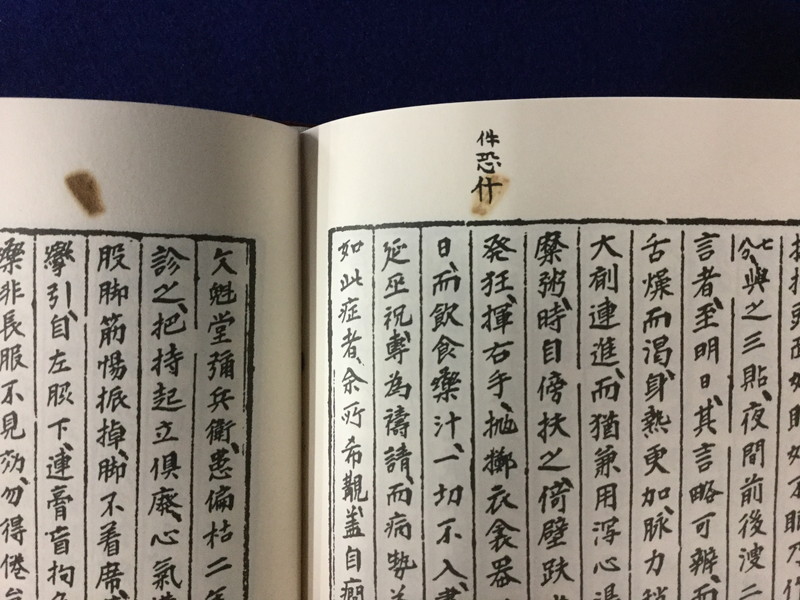 件恐什
七分、與之三貼、夜間前後溲二
言者、至明日、其言略可辨、而
舌燥而渴、身熱更加、脉力
大劑連進、而猶兼用瀉心湯
糜粥、時自傍扶之、倚壁趺
發狂、揮右手、抛擲衣衾器
日、而飲食藥汁一切不入、
延巫祝、專為禱請、而病勢
如此症者、余所希覯、蓋自癇
久魁堂彌兵衛、患偏枯二年
診之、把持起立俱廢、心氣
股脚筋惕振掉、脚不着席、
攣引、自左脇下、連膏肓拘
藥非長服不見効、勿得倦